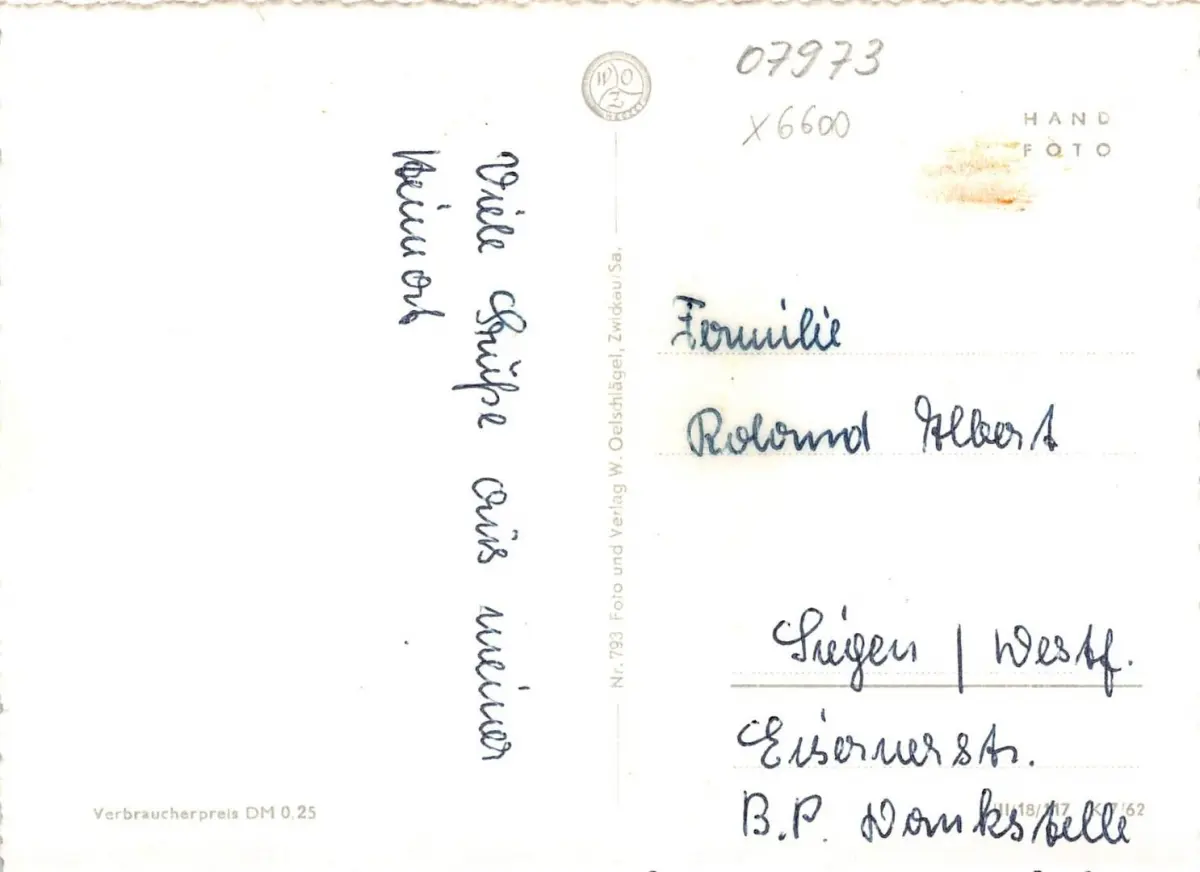 07973
x6600
WOZ
HAND
FOTO
Viele Grüße aus meiner
Heimat
Nr. 793 Foto und Verlag W. Oelschlägel, Zwickau/Sa.
Familie
Roland Albert
Siegen / Westf.
Eisernerstr.
B.P. Tankstelle
Verbraucherpreis DM 0,25
III/18/117 K 7/62